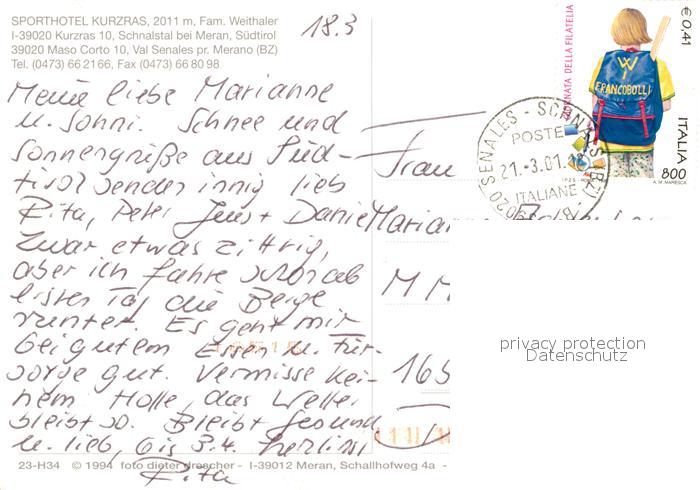 SPORTHOTEL KURZRAS, 2011 m, Fam. Weithaler
I-39020 Kurzras 10, Schnalstal bei Meran, Südtirol
39020 Maso Corto 10, Val Senales pr. Merano (BZ)
Tel. (0473) 66 21 66, Fax (0473) 66 80 98
18.3
Meine liebe Marianne
u. Sohni. Schnee und
Sonnengrüße aus Süd-
tirol senden innig lieb
Rita, Peter Jens + Daniel
Zwar etwas zittrig,
aber ich fahre schon ab
ersten Tag die Berge
runter. Es geht mir
bei gutem Essen u. Für-
sorge gut. Vermisse kei-
nem Hölle, das Wetter
bleibt so. Bleibt gesund
u. lieb, bis 3.4. herzlinst
Rita
23-H34 © 1994 foto dieter drescher - I-39012 Meran, Schallhofweg 4a -
Frau
M M
165
GIORNATA DELLA FILATELIA
€ 0,41
W
I
FRANCOBOLLI
ITALIA
800
A. M. MARESCA
SENALES - SCHNALS (BZ)
POSTE
21-3.01
ITALIANE
privacy protection
Datenschutz